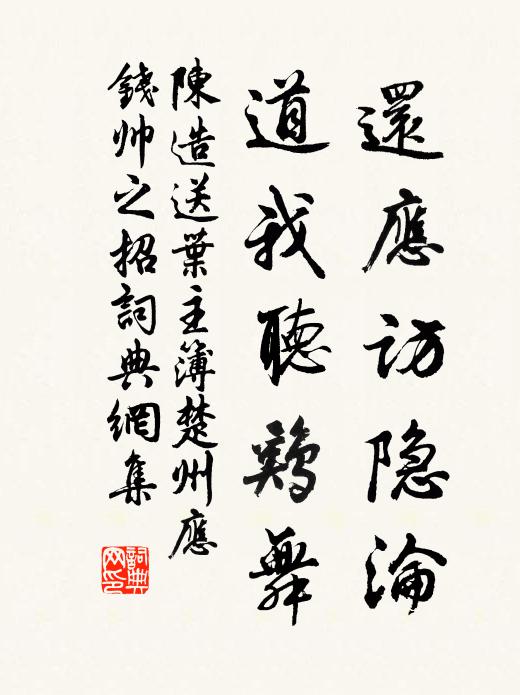 還應訪隐淪
道我聽鷄舞
陳造送葉主簿楚州應
錢帅之招詞典網集
詞典网印